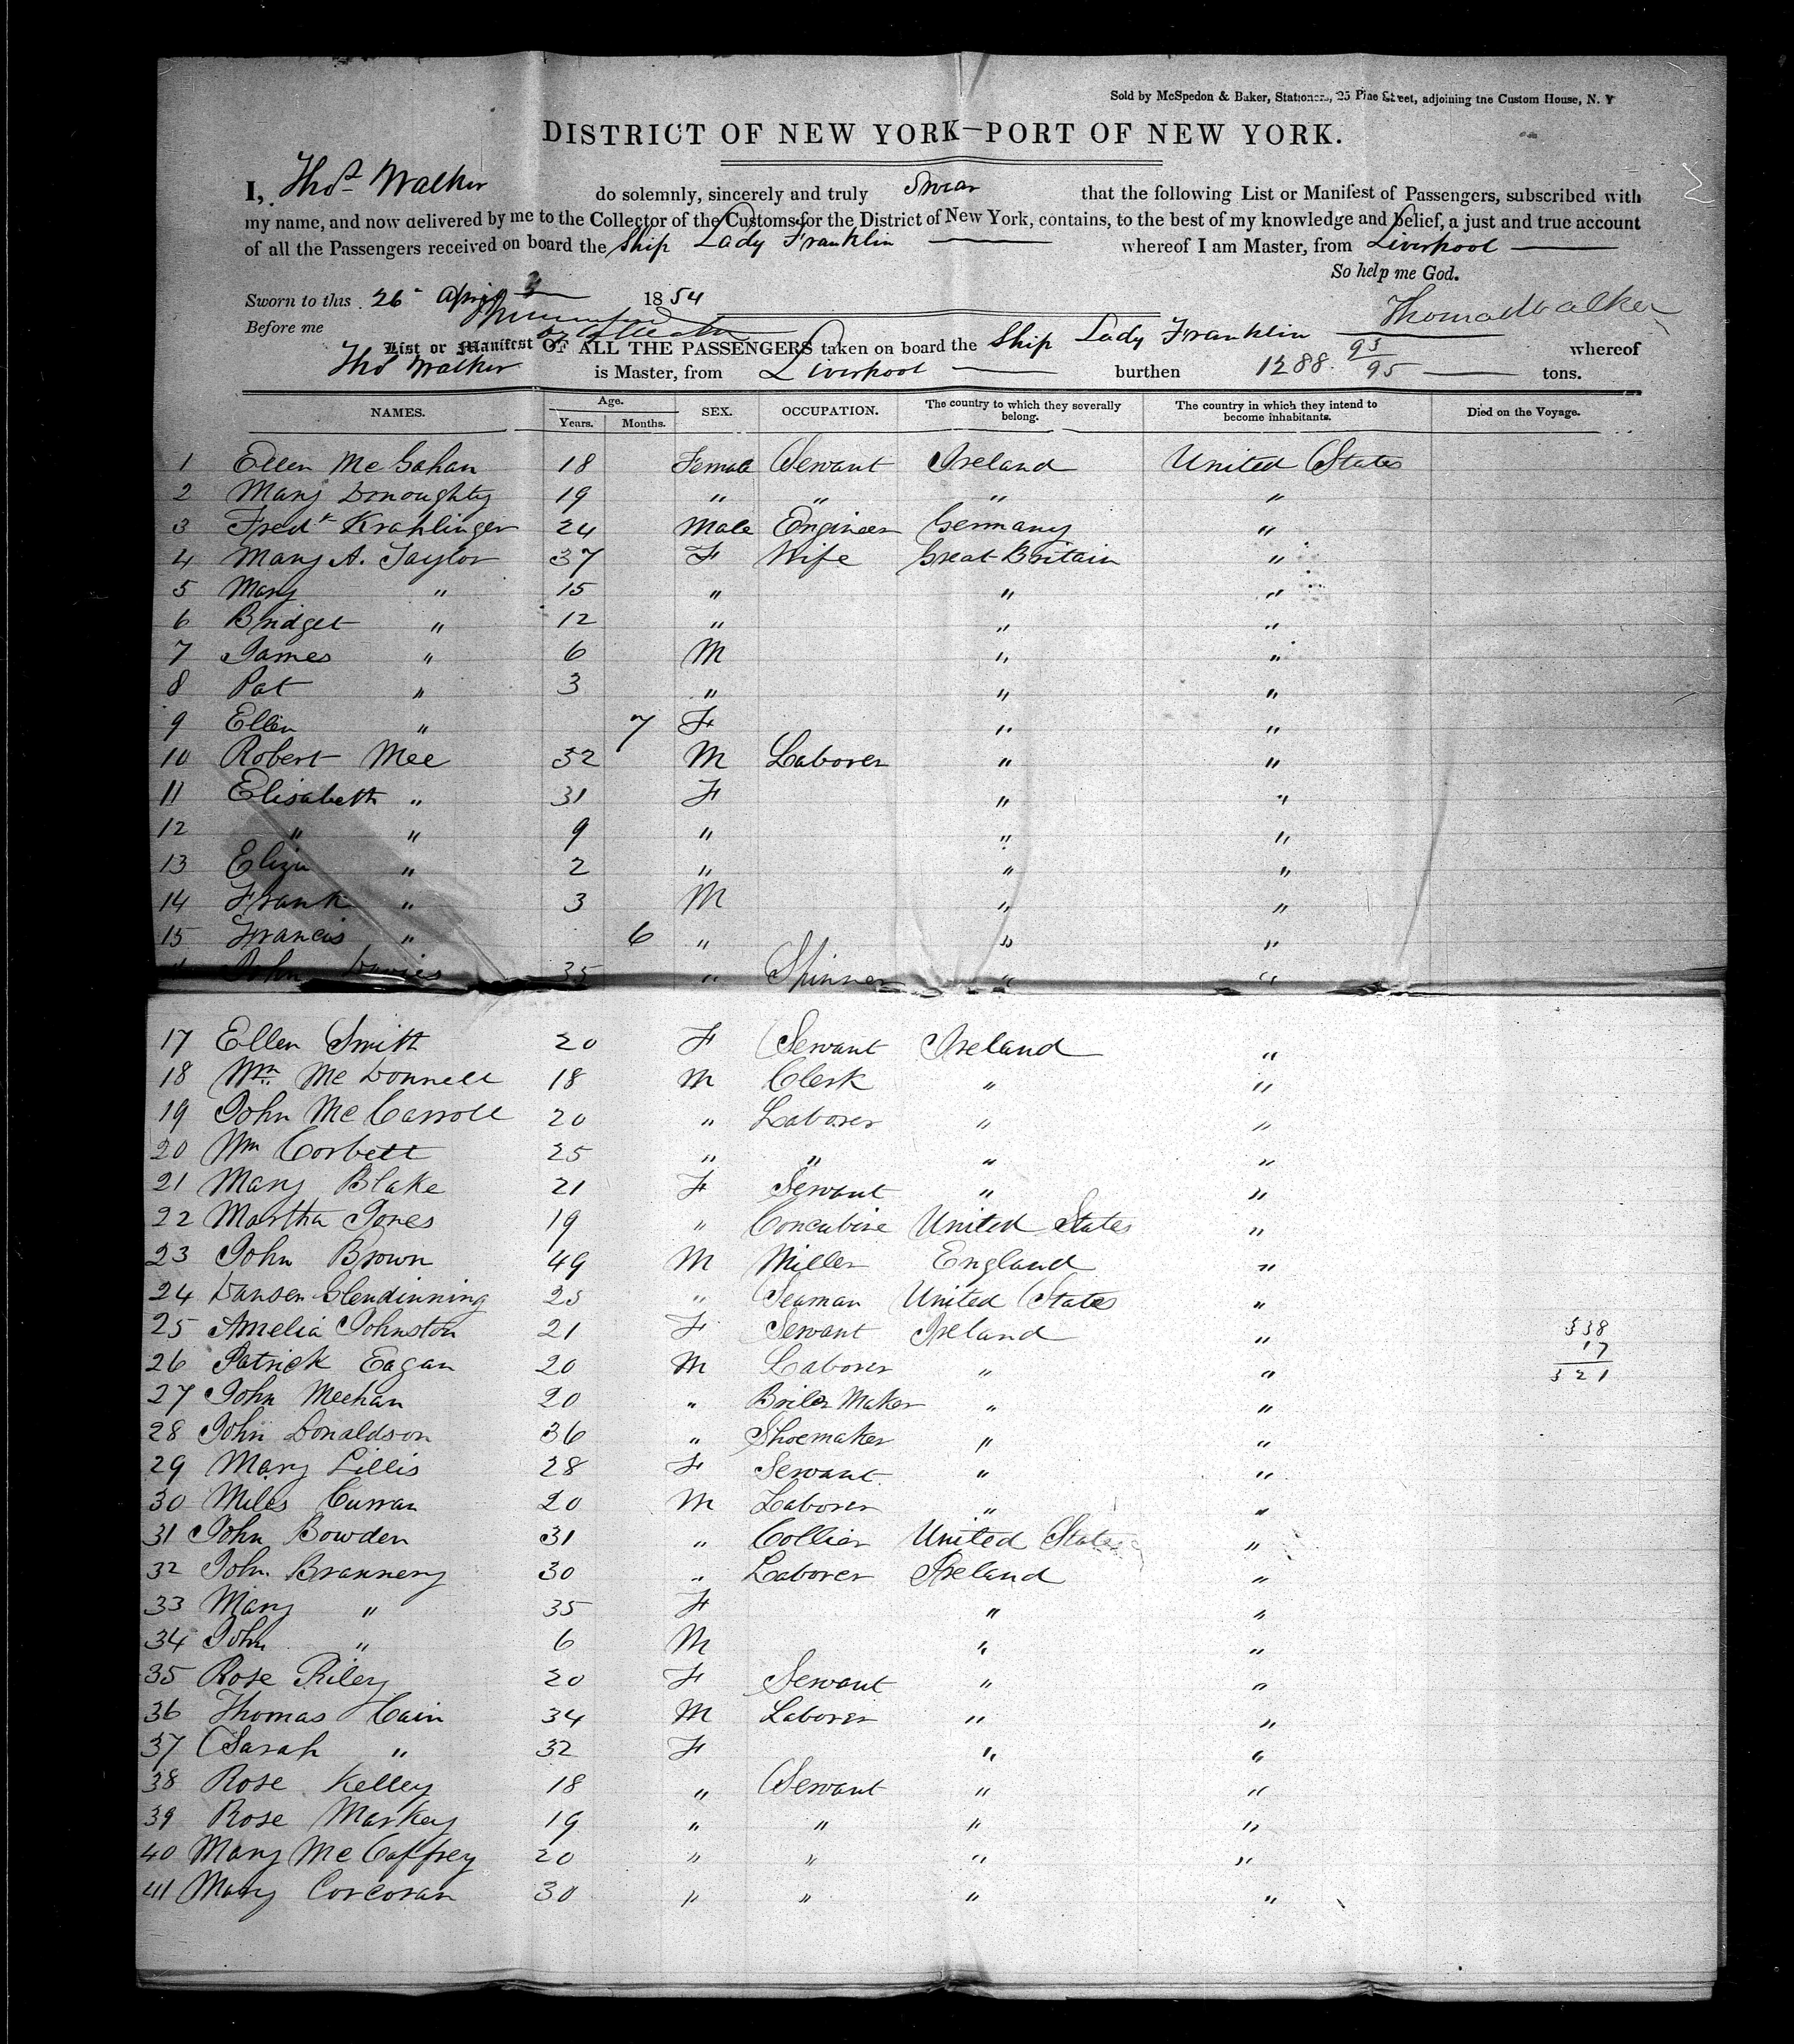 Sold by McSpedon & Baker, Stationers, 25 Pine Street, adjoining the Custom House, N. Y
DISTRICT OF NEW YORK—PORT OF NEW YORK.
I, Thos Walker do solemnly, sincerely and truly Swear that the following List or Manifest of Passengers, subscribed with
my name, and now delivered by me to the Collector of the Customs for the District of New York, contains, to the best of my knowledge and belief, a just and true account
of all the Passengers received on board the Ship Lady Franklin whereof I am Master, from Liverpool
So help me God.
Sworn to this 26 April 1854
Thomas Walker
Before me
List or Manifest OF ALL THE PASSENGERS taken on board the Ship Lady Franklin whereof
Thos Walker is Master, from Liverpool burthen 1288 93/95 tons.
NAMES. Age. Years. Months. SEX. OCCUPATION. The country to which they severally belong. The country in which they intend to become inhabitants. Died on the Voyage.
1 Ellen McGahan 18 Female Servant Ireland United States
2 Mary Donoughty 19 " " " "
3 Fredk Krahlinger 24 Male Engineer Germany "
4 Mary A. Taylor 37 F Wife Great Britain "
5 Mary " 15 " " "
6 Bridget " 12 " " "
7 James " 6 M " "
8 Pat " 3 " " "
9 Ellen " 7 F " "
10 Robert Mee 32 M Laborer " "
11 Elisabeth " 31 F " "
12 " " 9 " " "
13 Eliza " 2 " " "
14 Frank " 3 M " "
15 Francis " 6 " " "
John Davies 35 " Spinner " "
17 Ellen Smith 20 F Servant Ireland "
18 Wm McDonnell 18 M Clerk " "
19 John McCarroll 20 " Laborer " "
20 Wm Corbett 25 " " " "
21 Mary Blake 21 F Servant " "
22 Martha Jones 19 " Concubine United States "
23 John Brown 49 M Miller England "
24 Glendinning " Seaman United States "
25 Amelia Johnston 21 F Servant Ireland " 338
17
26 Patrick Eagan 20 M Laborer " " 321
27 John Meehan 20 " Boiler Maker " "
28 John Donaldson 36 " Shoemaker " "
29 Mary Lillis 28 F Servant " "
30 Miles Curran 20 M Laborer " "
31 John Bowden 31 " Collier United States "
32 John Brannery 30 " Laborer Ireland "
33 Mary " 35 F " "
34 John " 6 M " "
35 Rose Riley 20 F Servant " "
36 Thomas Cain 34 M Laborer " "
37 Sarah " 32 F " "
38 Rose Kelley 18 " Servant " "
39 Rose Markey 19 " " " "
40 Mary McCaffrey 20 " " " "
41 Mary Corcoran 30 " " " "